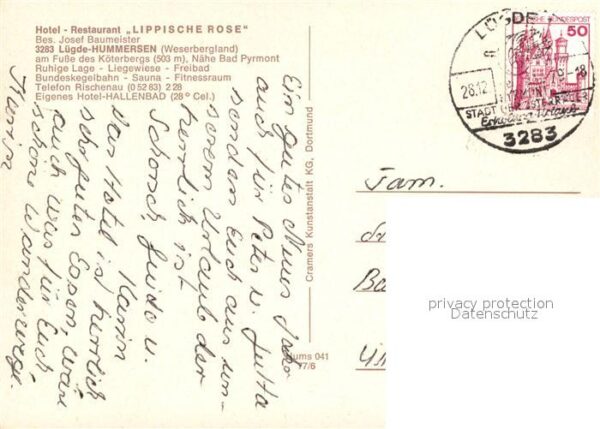 Hotel - Restaurant „LIPPISCHE ROSE"
Bes. Josef Baumeister
3283 Lügde-HUMMERSEN (Weserbergland)
am Fuße des Köterbergs (503 m), Nähe Bad Pyrmont
Ruhige Lage - Liegewiese - Freibad
Bundeskegelbahn - Sauna - Fitnessraum
Telefon Rischenau (0 52 83) 2 28
Eigenes Hotel-HALLENBAD (28° Cel.)
Ein gutes Neues Jahr
auch für Peter u. Jutta
senden Euch aus un-
serem Urlaub der
herrlich ist
Schorsch, Guido u.
Karin
Das Hotel ist herrlich
sehr gutes Essen, wäre
auch was für Euch
schöne Wanderwege.
Karin
Cramers Kunstanstalt KG, Dortmund
Hums 041
77/6
LÜGDE
28.12
STADT DER OSTERRÄDER
3283
BUNDESPOST
50
Fam.
privacy protection
Datenschutz